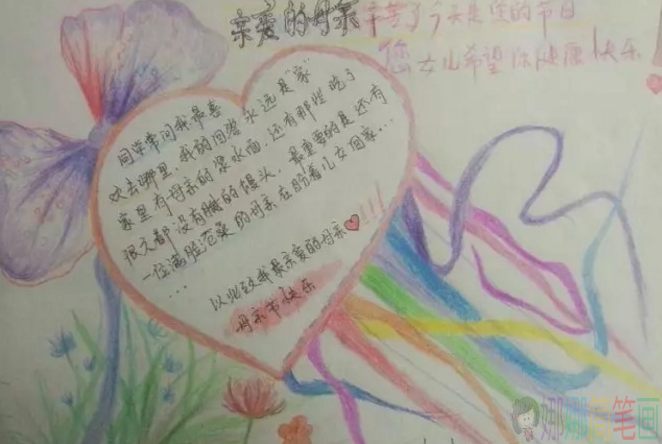 亲爱的母亲辛苦了今天是您的节日
您女儿希望你健康快乐!
同学常问我最喜
欢去哪里,我的回答永远是"家"
家里有母亲的浆水面,还有那些吃了
很久都没有腻的馒头,最重要的是还有
一位满脸沧桑的母亲在盼着儿女回家...
...
!!!
以此致我最亲爱的母亲
母亲节快乐
娜娜画笔画